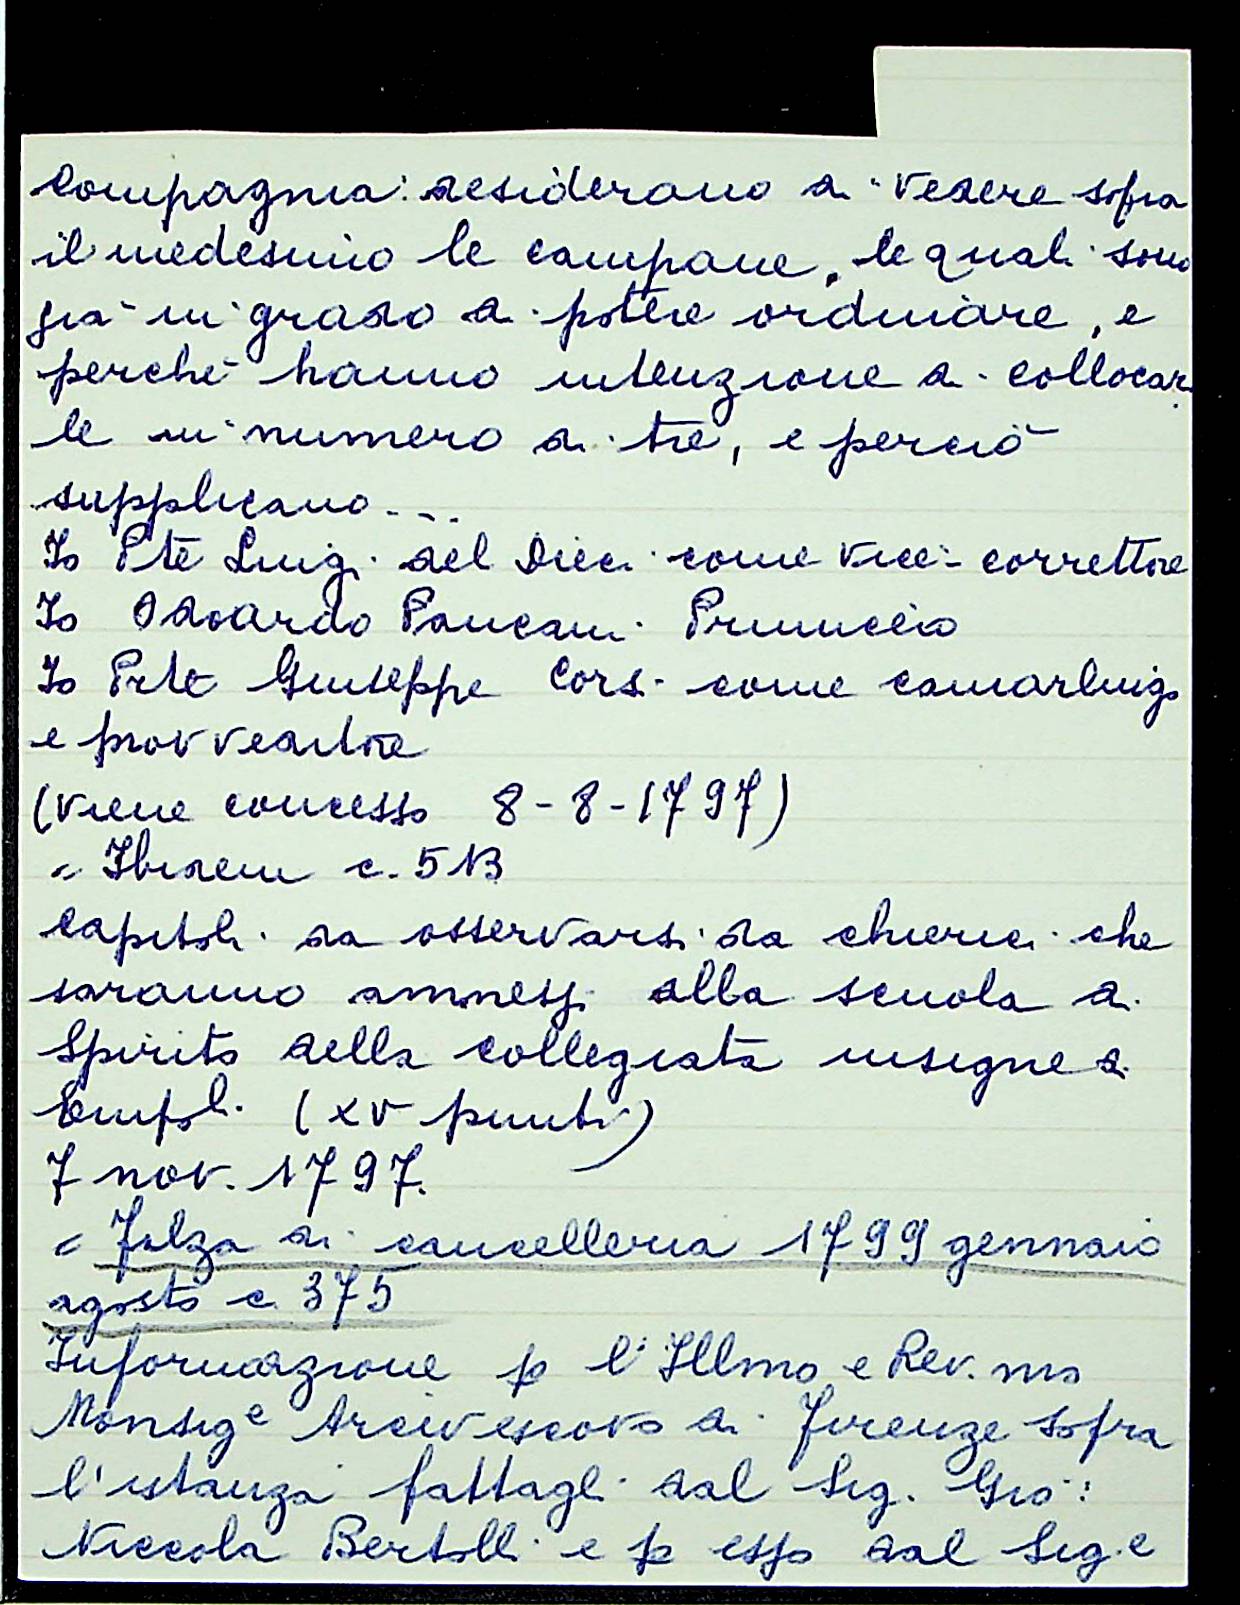 Compagnia: desiderano di vedere sopra
il medesimo le campane, le quali sono
già in grado di potere ordinare, e
perché hanno intenzione di collocar
le in numero di tre, e perciò
supplicano...
Io Pte Luigi del Dieci come vice-correttore
Io Odoardo Pancani
Io Prte Giuseppe Corsi come camarlingo
e provveditore
(viene concesso 8-8-1797)
= Ibidem c. 513
Capitoli da osservarsi da chierici che
saranno ammessi alla scuola di
Spirito della collegiata insigne di
Empoli. (XV punti)
7 nov. 1797.
= Filza di cancelleria 1799 gennaio
agosto c. 375
Informazione p l'Illmo e Rev.mo
Monsige Arcivescovo di Firenze sopra
l'istanza fattagli dal Sig. Gio:
Niccola Bertolli e p esso dal Sig.e